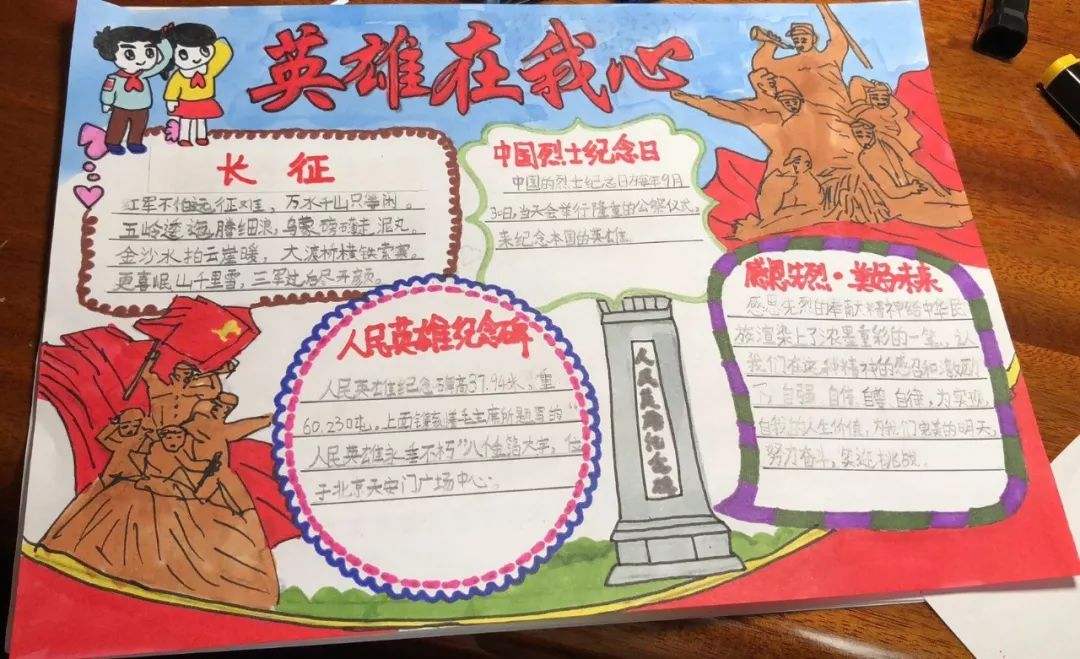 英雄在我心
长征
红军不怕远征难，万水千山只等闲。
五岭逶迤腾细浪，乌蒙磅礴走泥丸。
金沙水拍云崖暖，大渡桥横铁索寒。
更喜岷山千里雪，三军过后尽开颜。
中国烈士纪念日
中国的烈士纪念日为每年9月
30日，当天会举行隆重的公祭仪式，
来纪念本国的英雄。
人民英雄纪念碑
人民英雄纪念碑高37.94米、重
60.230吨。上面镌刻着毛主席所题写的“
人民英雄永垂不朽”八个金箔大字，位
于北京天安门广场中心。
人民英雄纪念碑
感恩先烈·美好未来
感恩先烈的奉献精神给中华民
族渲染上了浓墨重彩的一笔，让
我们在这种精神的感召和激励
下，自强、自信、自尊、自律，为实现
自我的人生价值，为我们更美的明天，
努力奋斗，实迎挑战.